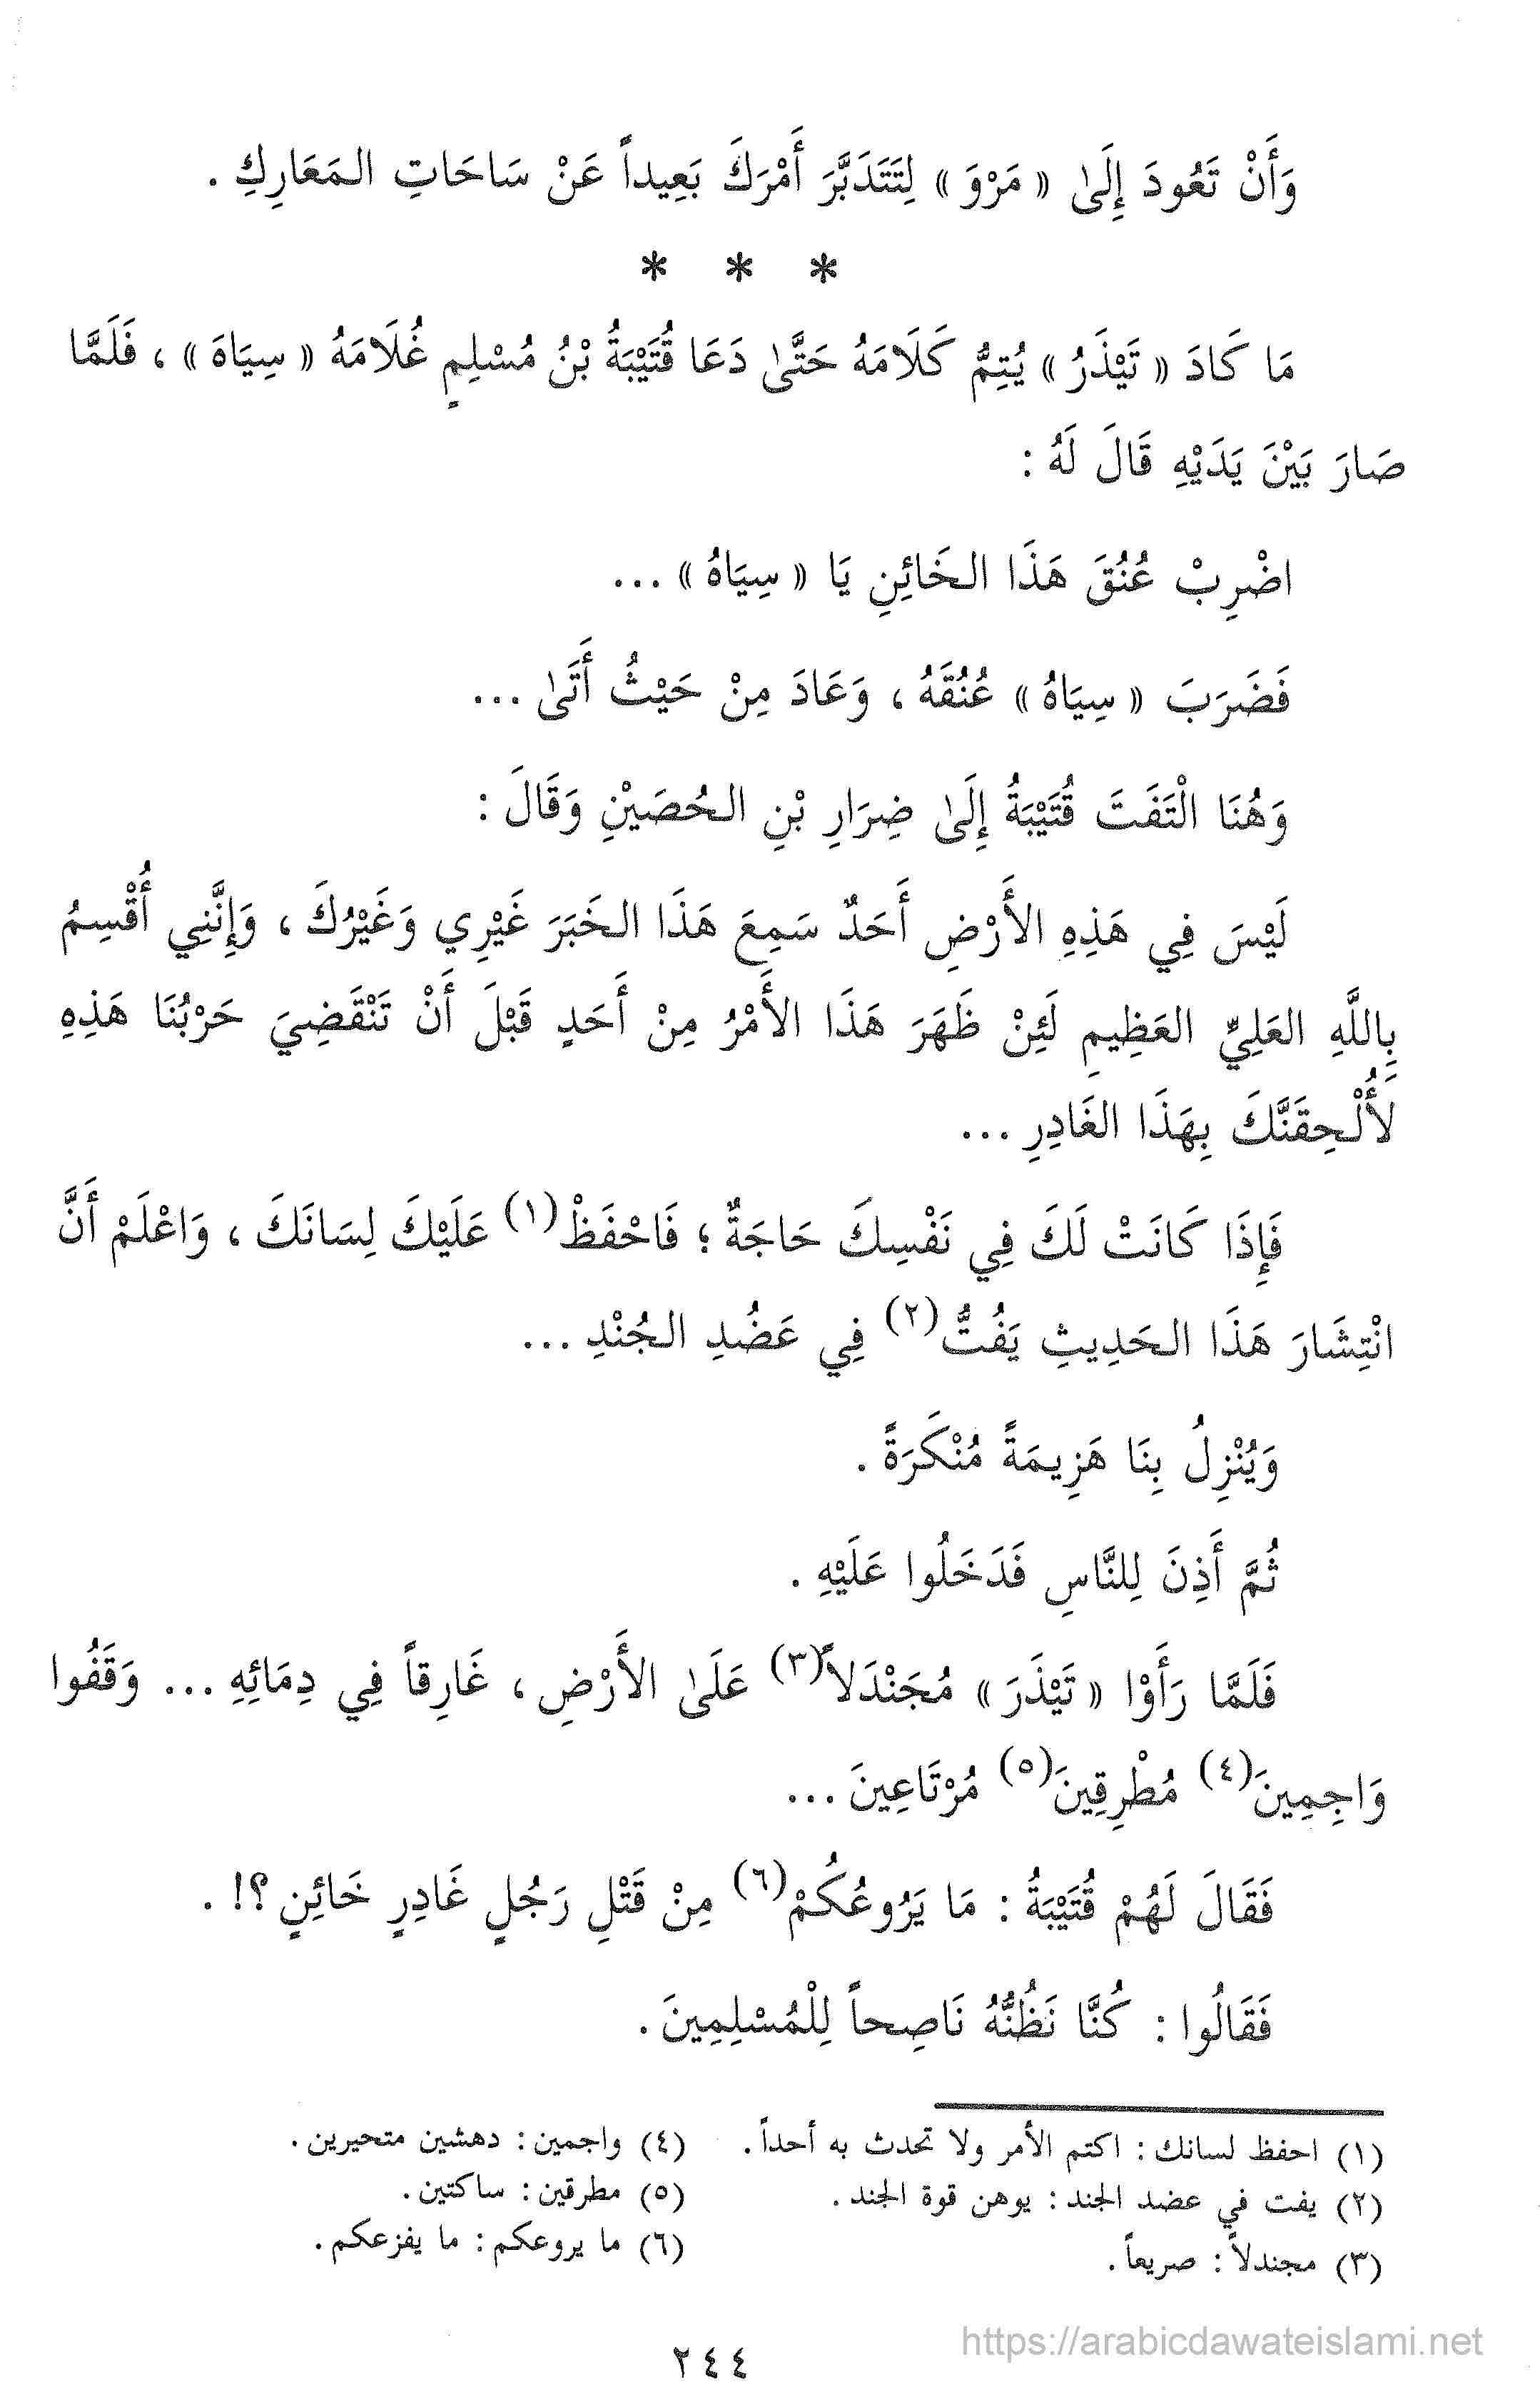 وَأَنْ تَعُودَ إِلَىٰ « مَرْوَ » لِتَتَدَبَّرَ أَمْرَكَ بَعِيداً عَنْ سَاحَاتِ المَعَارِكِ .
* * *
مَا كَادَ « تَيْذَرُ » يُتِمُّ كَلَامَهُ حَتَّىٰ دَعَا قُتَيْبَةُ بْنُ مُسْلِمٍ غُلَامَهُ « سِيَاهَ » ، فَلَمَّا
صَارَ بَيْنَ يَدَيْهِ قَالَ لَهُ :
اضْرِبْ عُنُقَ هَذَا الخَائِنِ يَا « سِيَاهُ » ...
فَضَرَبَ « سِيَاهُ » عُنُقَهُ ، وَعَادَ مِنْ حَيْثُ أَتَىٰ ...
وَهُنَا الْتَفَتَ قُتَيْبَةُ إِلَىٰ ضِرَارِ بْنِ الحُصَيْنِ وَقَالَ :
لَيْسَ فِي هَذِهِ الأَرْضِ أَحَدٌ سَمِعَ هَذَا الخَبَرَ غَيْرِي وَغَيْرُكَ ، وَإِنَّنِي أُقْسِمُ
بِاللَّهِ العَلِيِّ العَظِيمِ لَئِنْ ظَهَرَ هَذَا الأَمْرُ مِنْ أَحَدٍ قَبْلَ أَنْ تَنْقَضِيَ حَرْبُنَا هَذِهِ
لأُلْحِقَنَّكَ بِهَذَا الغَادِرِ ...
فَإِذَا كَانَتْ لَكَ فِي نَفْسِكَ حَاجَةٌ ؛ فَاحْفَظْ(١) عَلَيْكَ لِسَانَكَ ، وَاعْلَمْ أَنَّ
انْتِشَارَ هَذَا الحَدِيثِ يَفُتُّ(٢) فِي عَضُدِ الجُنْدِ ...
وَيُنْزِلُ بِنَا هَزِيمَةً مُنْكَرَةً .
ثُمَّ أَذِنَ لِلنَّاسِ فَدَخَلُوا عَلَيْهِ .
فَلَمَّا رَأَوْا « تَيْذَرَ » مُجَنْدَلاً(٣) عَلَىٰ الأَرْضِ ، غَارِقاً فِي دِمَائِهِ ... وَقَفُوا
وَاجِمِينَ(٤) مُطْرِقِينَ(٥) مُرْتَاعِينَ ...
فَقَالَ لَهُمْ قُتَيْبَةُ : مَا يَرُوعُكُمْ(٦) مِنْ قَتْلِ رَجُلٍ غَادِرٍ خَائِنٍ ؟! .
فَقَالُوا : كُنَّا نَظُنُّهُ نَاصِحاً لِلْمُسْلِمِينَ .
(١) احفظ لسانك : اكتم الأمر ولا تحدث به أحداً .
(٢) يفت في عضد الجند : يوهن قوة الجند .
(٣) مجندلاً : صريعاً .
(٤) واجمين : دهشين متحيرين .
(٥) مطرقين : ساكتين .
(٦) ما يروعكم : ما يفزعكم .
٢٤٤
https://arabicdawateislami.net